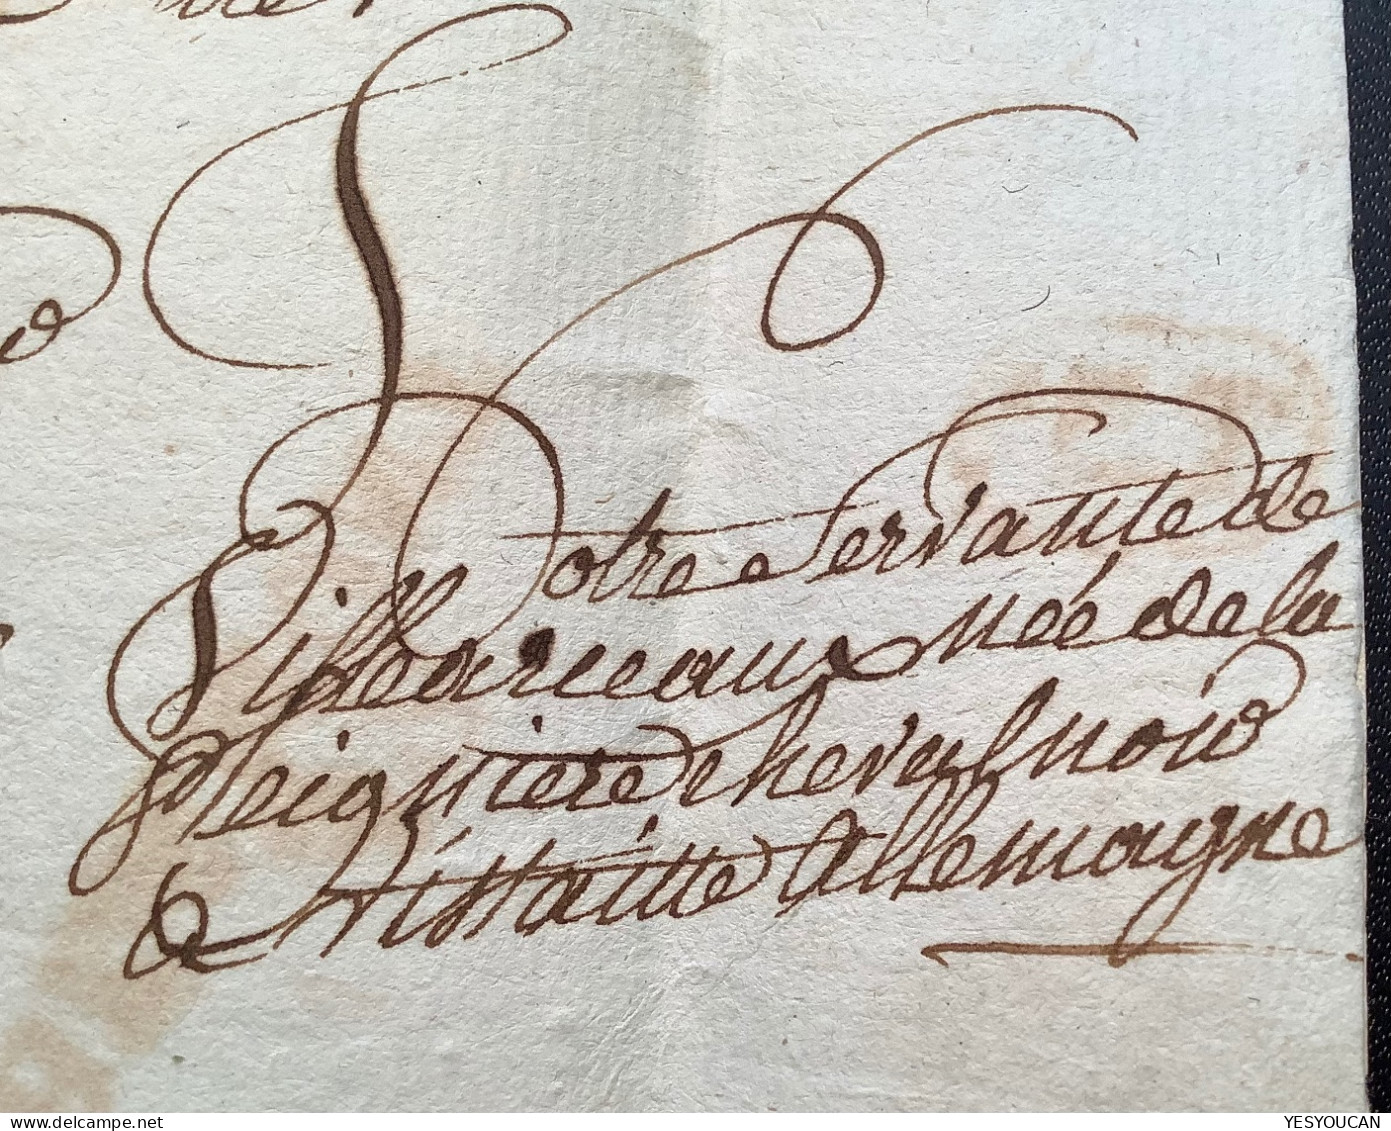 Votre Servante de
Villearceaux née de la
Seigniere cheval noir
a Allemagne
YESYOUCAN